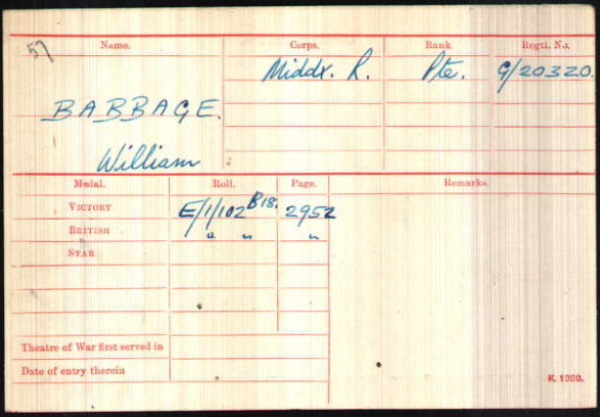 57
Name. Corps. Rank. Regtl. No.
Middx. R. Pte. G/20320.
BABBAGE.
William
Medal. Roll. Page. Remarks.
VICTORY E/1/102 B18. 2952
BRITISH " " "
STAR
Theatre of War first served in
Date of entry therein
K. 1380.